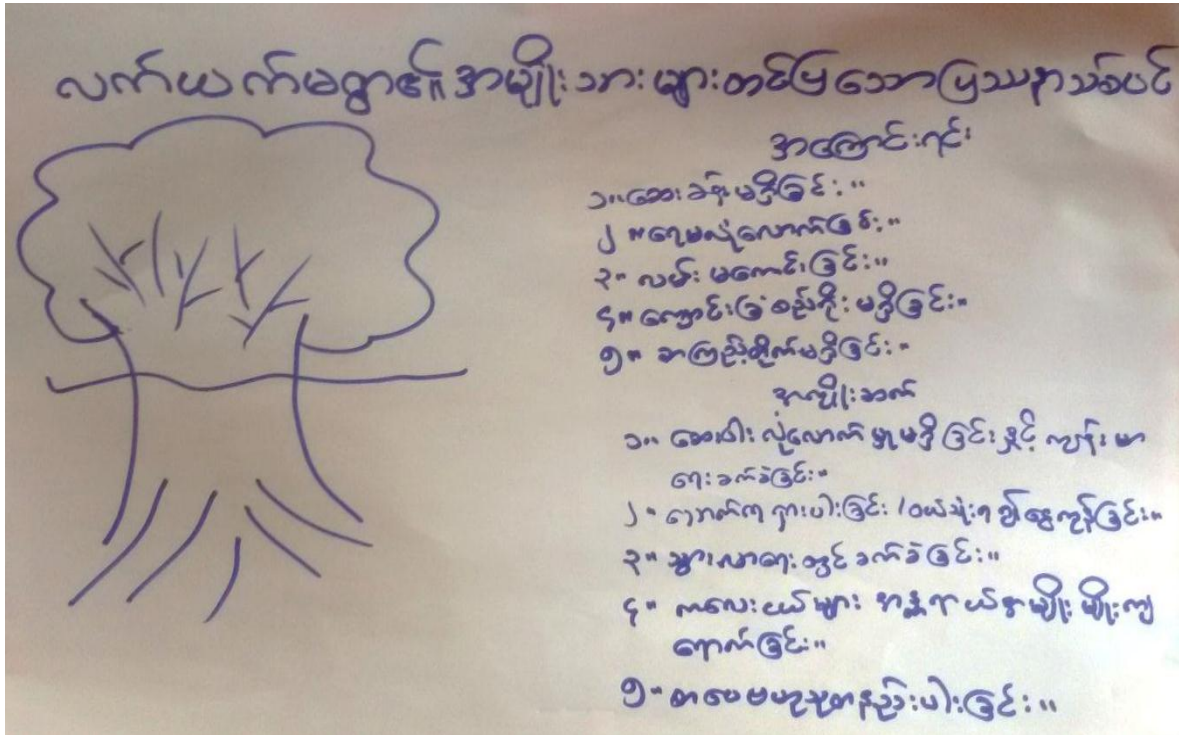 လက်ယက်မရွာ၏အမျိုးသားများတင်ပြသောပြဿနာသစ်ပင်
အကြောင်းရင်း
၁။ ဆေးခန်းမရှိခြင်း။
၂။ ရေမလုံလောက်ခြင်း။
၃။ လမ်းမကောင်းခြင်း။
၄။ ကျောင်းခြံစည်းရိုးမရှိခြင်း။
၅။ စာကြည့်တိုက်မရှိခြင်း။
အကျိုးဆက်
၁။ ဆေးဝါးလုံလောက်မှုမရှိခြင်းနှင့် ကျန်းမာ
ရေးခက်ခဲခြင်း။
၂။ ရှားပါးခြင်း / ဝယ်သုံး၍ ငွေကုန်ခြင်း။
၃။ သွားလာရေးတွင်ခက်ခဲခြင်း။
၄။ ကလေးငယ်များ အန္တရာယ်အမျိုးမျိုးကျ
ရောက်ခြင်း။
၅။ စာပေဗဟုသုတနည်းပါးခြင်း။